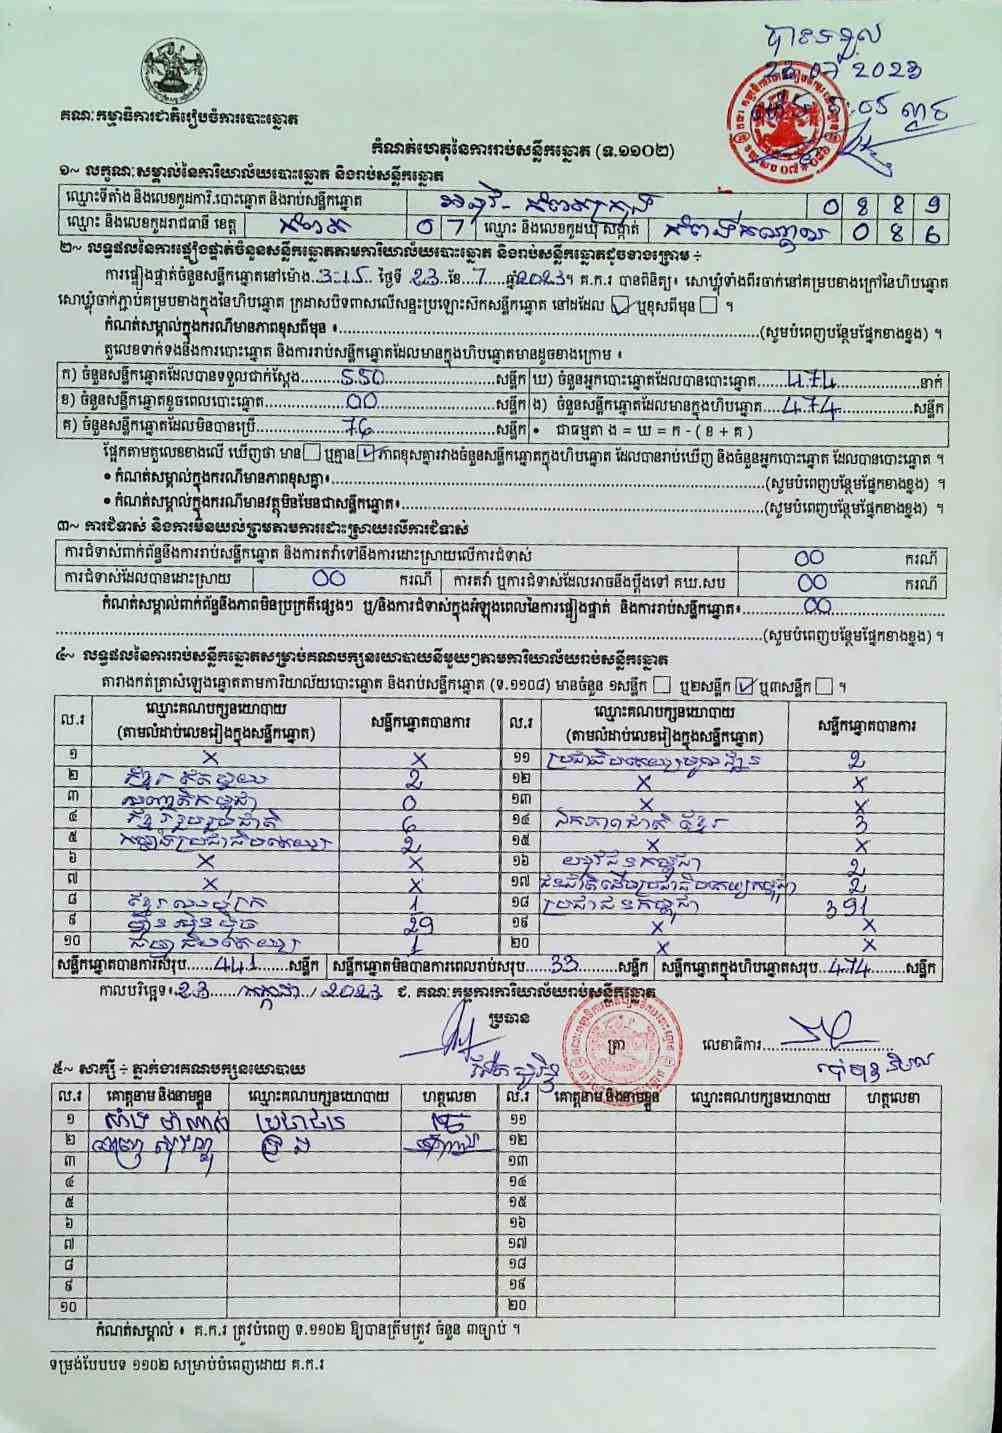 បានទទួល
23 07 2023
គណៈកម្មាធិការជាតិរៀបចំការបោះឆ្នោត
កំណត់ហេតុនៃការរាប់សន្លឹកឆ្នោត (ទ.១១០២)
១~ លក្ខណៈសម្គាល់នៃការិយាល័យបោះឆ្នោត និងរាប់សន្លឹកឆ្នោត
ឈ្មោះទីតាំង និងលេខកូដការិ.បោះឆ្នោត និងរាប់សន្លឹកឆ្នោត 0 8 8 9
ឈ្មោះ និងលេខកូដរាជធានី ខេត្ត កំពត 0 7 ឈ្មោះ និងលេខកូដឃុំ សង្កាត់ កំពង់កណ្ដាល 0 8 6
២~ លទ្ធផលនៃការផ្ទៀងផ្ទាត់ចំនួនសន្លឹកឆ្នោតតាមការិយាល័យបោះឆ្នោត និងរាប់សន្លឹកឆ្នោតដូចខាងក្រោម ÷
ការផ្ទៀងផ្ទាត់ចំនួនសន្លឹកឆ្នោតនៅម៉ោង.3:15.. ថ្ងៃទី 23.ខែ.7.....ឆ្នាំ2023។ គ.ក.រ បានពិនិត្យ៖ សោឃ្លុំទាំងពីរចាក់នៅគម្របខាងក្រៅនៃហិបឆ្នោត
សោឃ្លុំចាក់ភ្ជាប់គម្របខាងក្នុងនៃហិបឆ្នោត ក្រដាសបិទពាសលើសន្ទះប្រឡោះសឹកសន្លឹកឆ្នោត នៅដដែល ☑ ឬខុសពីមុន ☐ ។
កំណត់សម្គាល់ក្នុងករណីមានភាពខុសពីមុន ៖..........(សូមបំពេញបន្ថែមផ្នែកខាងខ្នង) ។
តួលេខទាក់ទងនឹងការបោះឆ្នោត និងការរាប់សន្លឹកឆ្នោតដែលមានក្នុងហិបឆ្នោតមានដូចខាងក្រោម ៖
ក) ចំនួនសន្លឹកឆ្នោតដែលបានទទួលជាក់ស្ដែង.......550..........សន្លឹក ឃ) ចំនួនអ្នកបោះឆ្នោតដែលបានបោះឆ្នោត......474..........នាក់
ខ) ចំនួនសន្លឹកឆ្នោតខូចពេលបោះឆ្នោត..........00..........សន្លឹក ង) ចំនួនសន្លឹកឆ្នោតដែលមានក្នុងហិបឆ្នោត....474..........សន្លឹក
គ) ចំនួនសន្លឹកឆ្នោតដែលមិនបានប្រើ..........76..........សន្លឹក • ជាធម្មតា ង = ឃ = ក - ( ខ + គ )
ផ្អែកតាមតួលេខខាងលើ ឃើញថា មាន ☐ ឬគ្មាន ☑ ភាពខុសគ្នារវាងចំនួនសន្លឹកឆ្នោតក្នុងហិបឆ្នោត ដែលបានរាប់ឃើញ និងចំនួនអ្នកបោះឆ្នោត ដែលបានបោះឆ្នោត ។
• កំណត់សម្គាល់ក្នុងករណីមានភាពខុសគ្នា៖..........(សូមបំពេញបន្ថែមផ្នែកខាងខ្នង) ។
• កំណត់សម្គាល់ក្នុងករណីមានវត្ថុមិនមែនជាសន្លឹកឆ្នោត៖..........(សូមបំពេញបន្ថែមផ្នែកខាងខ្នង) ។
៣~ ការជំទាស់ និងការមិនយល់ព្រមតាមការដោះស្រាយលើការជំទាស់
ការជំទាស់ពាក់ព័ន្ធនឹងការរាប់សន្លឹកឆ្នោត និងការតវ៉ាទៅនឹងការដោះស្រាយលើការជំទាស់ 00 ករណី
ការជំទាស់ដែលបានដោះស្រាយ 00 ករណី ការតវ៉ា ឬការជំទាស់ដែលអាចនឹងប្ដឹងទៅ គឃ.សប 00 ករណី
កំណត់សម្គាល់ពាក់ព័ន្ធនឹងភាពមិនប្រក្រតីផ្សេងៗ ឬ/និងការជំទាស់ក្នុងអំឡុងពេលនៃការផ្ទៀងផ្ទាត់ និងការរាប់សន្លឹកឆ្នោត៖..........00..........
..........(សូមបំពេញបន្ថែមផ្នែកខាងខ្នង) ។
៤~ លទ្ធផលនៃការរាប់សន្លឹកឆ្នោតសម្រាប់គណបក្សនយោបាយនីមួយៗតាមការិយាល័យរាប់សន្លឹកឆ្នោត
តារាងកត់ត្រាសំឡេងឆ្នោតតាមការិយាល័យបោះឆ្នោត និងរាប់សន្លឹកឆ្នោត (ទ.១១០៨) មានចំនួន ១សន្លឹក ☐ ឬ២សន្លឹក ☑ ឬ៣សន្លឹក ☐ ។
ល.រ ឈ្មោះគណបក្សនយោបាយ (តាមលំដាប់លេខរៀងក្នុងសន្លឹកឆ្នោត) សន្លឹកឆ្នោតបានការ ល.រ ឈ្មោះគណបក្សនយោបាយ (តាមលំដាប់លេខរៀងក្នុងសន្លឹកឆ្នោត) សន្លឹកឆ្នោតបានការ
១ X X ១១ ប្រជាធិបតេយ្យមូលដ្ឋាន 2
២ ខ្មែរតែមួយ 2 ១២ X X
៣ សញ្ជាតិកម្ពុជា 0 ១៣ X X
៤ ខ្មែររួបរួមជាតិ 6 ១៤ ឯកភាពជាតិខ្មែរ 3
៥ កម្លាំងប្រជាធិបតេយ្យ 2 ១៥ X X
៦ X X ១៦ យុវជនកម្ពុជា 2
៧ X X ១៧ ជនជាតិដើមប្រជាធិបតេយ្យកម្ពុជា 2
៨ ខ្មែរឈប់ក្រ 1 ១៨ ប្រជាជនកម្ពុជា 391
៩ ហ្វ៊ុនស៊ិនប៉ិច 29 ១៩ X X
១០ ធម្មាធិបតេយ្យ 1 ២០ X X
សន្លឹកឆ្នោតបានការសរុប......441......សន្លឹក សន្លឹកឆ្នោតមិនបានការពេលរាប់សរុប.....33.......សន្លឹក សន្លឹកឆ្នោតក្នុងហិបឆ្នោតសរុប..474......សន្លឹក
កាលបរិច្ឆេទ៖23....../កក្កដា../2023 ជ. គណៈកម្មការការិយាល័យរាប់សន្លឹកឆ្នោត
ប្រធាន
ត្រា
លេខាធិការ
៥~ សាក្សី ÷ ភ្នាក់ងារគណបក្សនយោបាយ
ល.រ គោត្តនាម និងនាមខ្លួន ឈ្មោះគណបក្សនយោបាយ ហត្ថលេខា ល.រ គោត្តនាម និងនាមខ្លួន ឈ្មោះគណបក្សនយោបាយ ហត្ថលេខា
១ ប្រជាជន ១១
២ ១២
៣ ១៣
៤ ១៤
៥ ១៥
៦ ១៦
៧ ១៧
៨ ១៨
៩ ១៩
១០ ២០
កំណត់សម្គាល់ ៖ គ.ក.រ ត្រូវបំពេញ ទ.១១០២ ឱ្យបានត្រឹមត្រូវ ចំនួន ៣ច្បាប់ ។
ទម្រង់បែបបទ ១១០២ សម្រាប់បំពេញដោយ គ.ក.រ